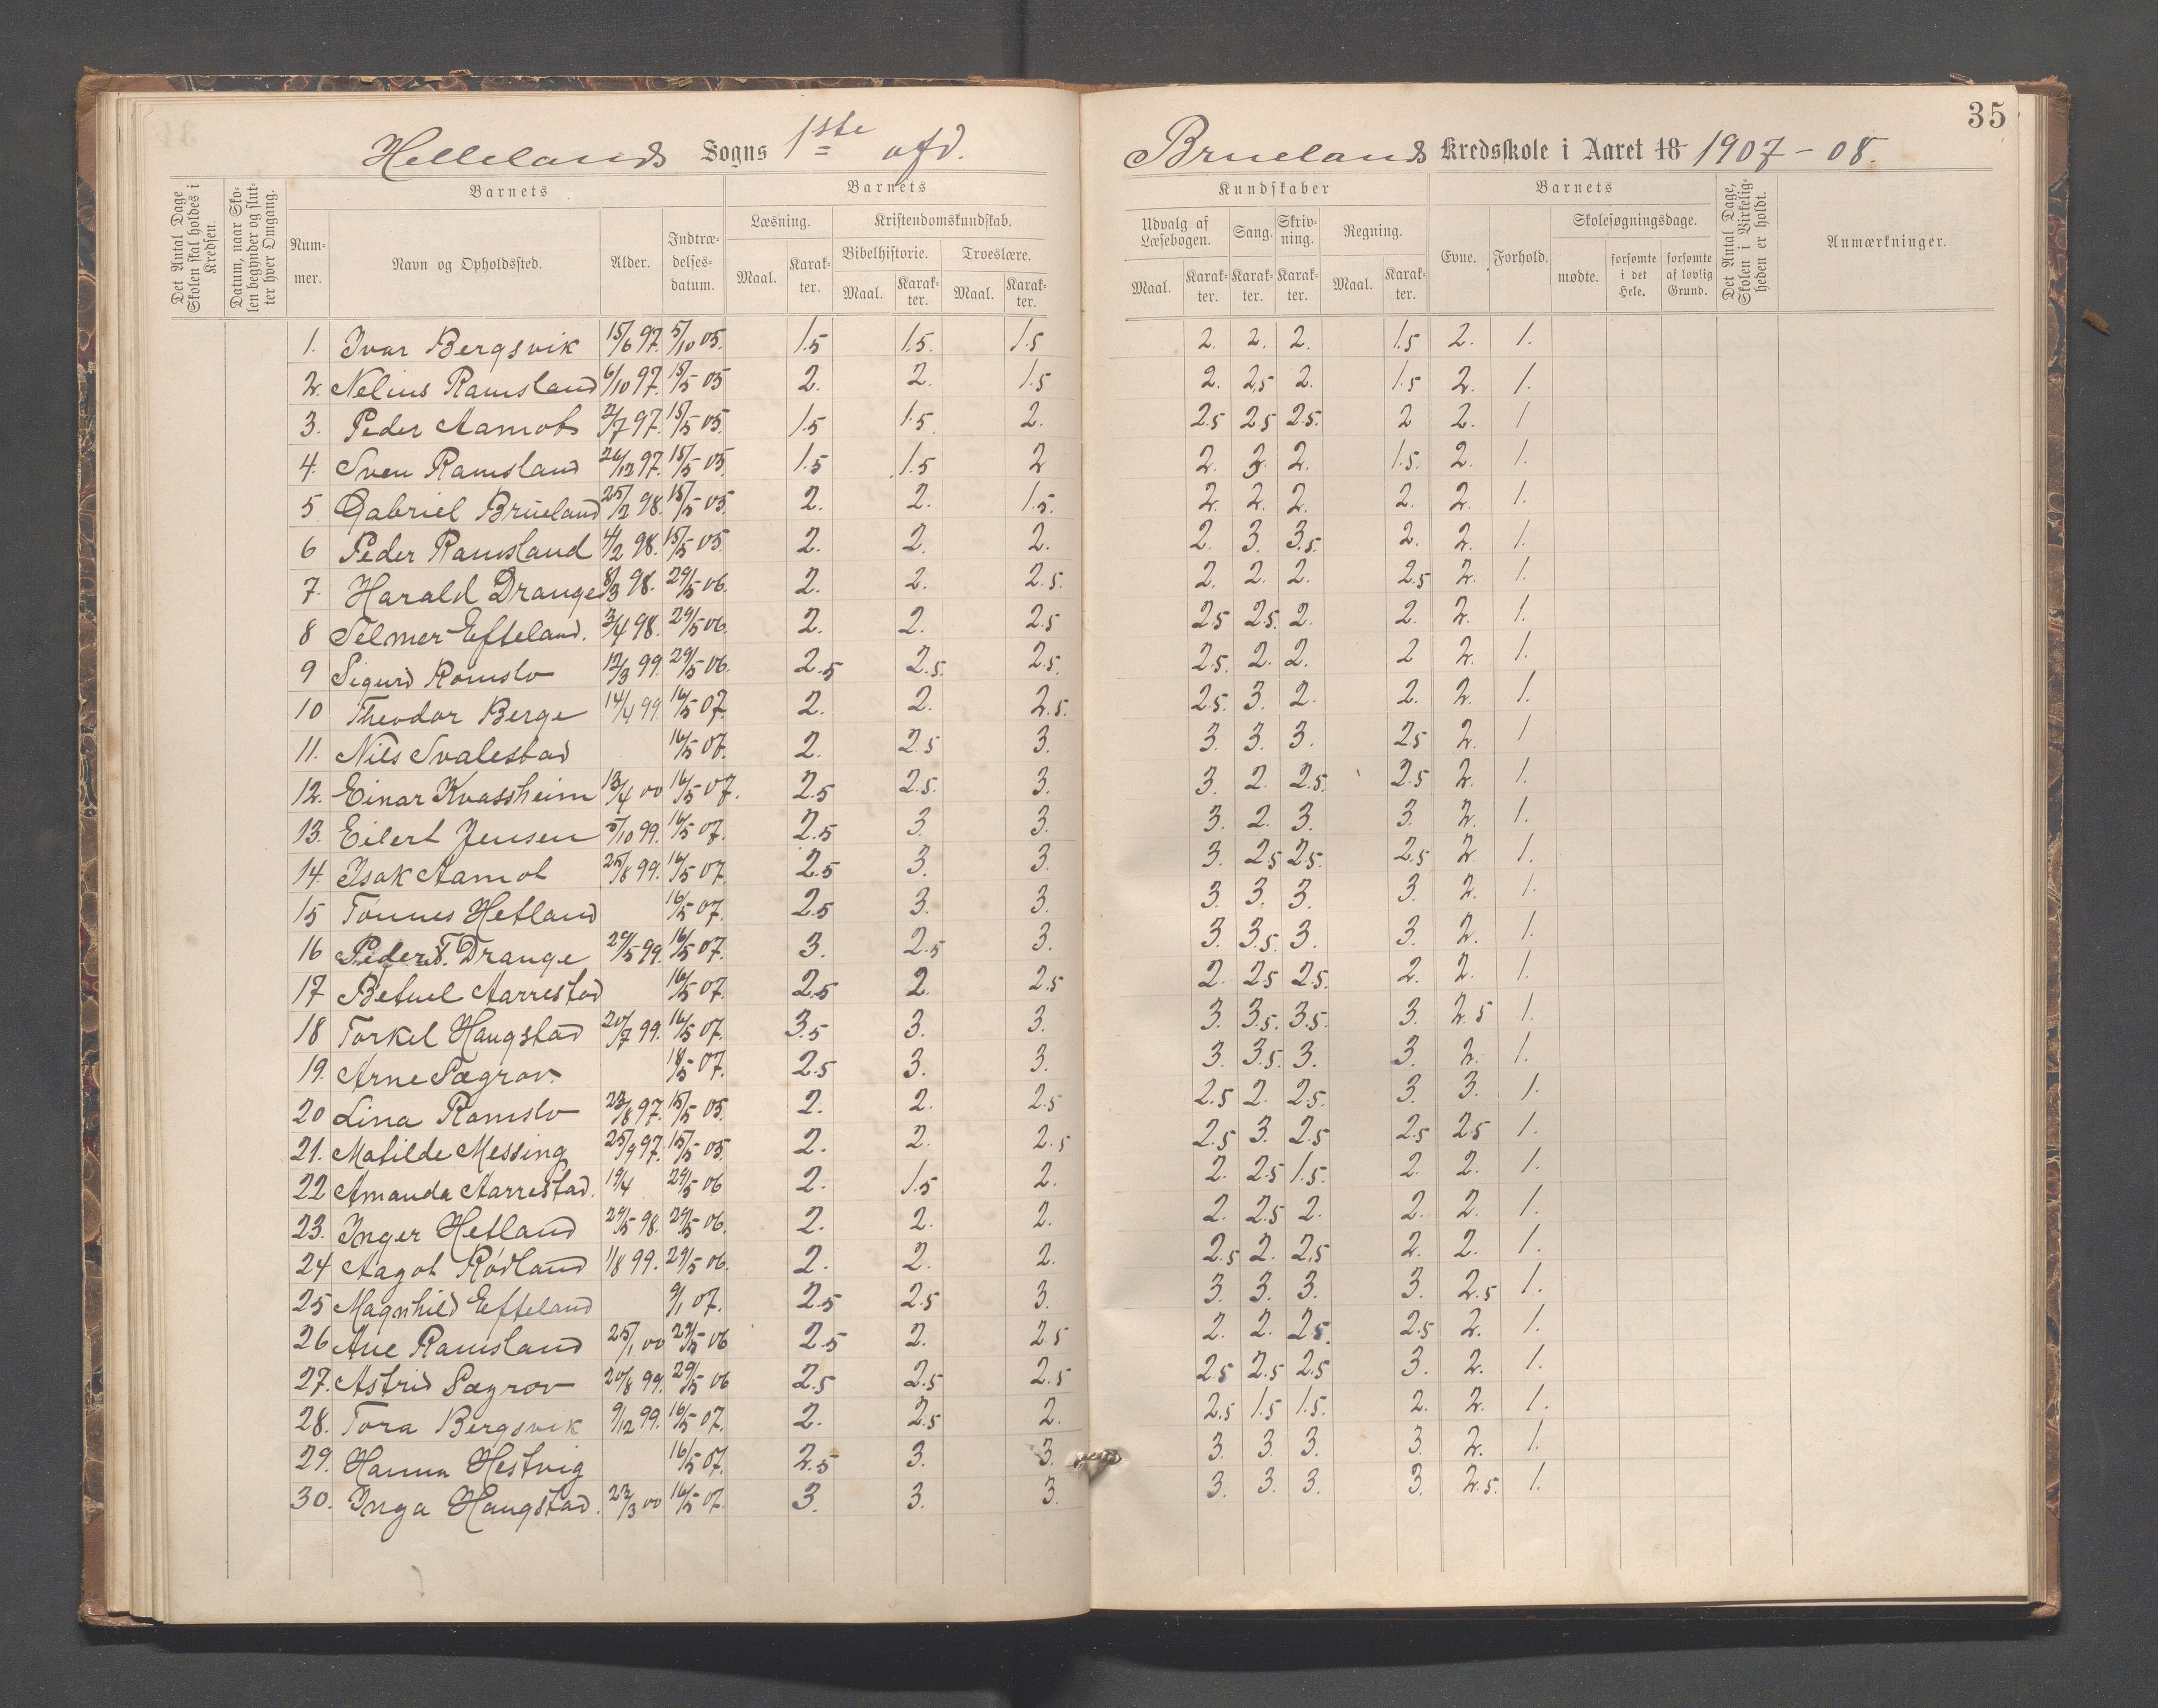 35
Hellelands Sogns 1ste afd. Bruelands Kredsskole i Aaret 18 1907-08.
Det Antal Dage Skolen skal holdes i Kredsen.
Datum, naar Skolen begynder og slutter hver Omgang.
Barnets
Nummer.
Navn og Opholdssted.
Alder.
Indtrædelsesdatum.
Barnets Kundskaber
Læsning.
Maal. Karakter.
Kristendomskundskab.
Bibelhistorie. Troeslære.
Maal. Karakter. Maal. Karakter.
Udvalg af Læsebogen. Sang. Skrivning. Regning.
Maal. Karakter. Karakter. Karakter. Maal. Karakter.
Barnets
Evne. Forhold. Skolesøgningsdage.
mødte. forsømte i det Hele. forsømte af lovlig Grund.
Det Antal Dage, Skolen i Virkeligheden er holdt.
Anmærkninger.
1. Ivar Bergsvik 15/6 97. 5/10 05. 1.5 1.5. 1.5 2. 2. 2. 1.5 2. 1.
2. Nelius Ramsland 6/10 97. 15/5 05 2. 2. 1.5 2. 2.5 2. 1.5 2. 1.
3. Peder Aamot 2/7 97. 15/5 05. 1.5 1.5 2. 2.5 2.5 2.5. 2 2. 1
4. Sven Ramsland 26/12 97. 15/5 05 1.5 1.5 2 2. 3. 2. 1.5. 2. 1.
5 Gabriel Brüeland 25/2 98. 15/5 05. 2. 2. 1.5. 2. 2. 2. 2. 2. 1.
6 Peder Ramsland 4/2 98. 15/5 05 2. 2. 2. 2. 3. 3.5. 2. 2. 1.
7. Harald Drange 8/3 98. 29/5 06. 2. 2. 2.5. 2. 2. 2. 2.5 2. 1.
8 Telmer Efteland. 3/4 98. 29/5 06. 2. 2. 2.5 2.5 2.5. 2. 2. 2. 1.
9 Sigurd Ramslo 12/3 99. 29/5 06. 2.5 2.5. 2.5. 2.5. 2. 2. 2 2. 1.
10 Theodor Berge 14/4 99. 16/5 07. 2. 2. 2.5. 2.5. 3. 2. 2. 2. 1.
11. Nils Svalestad 16/5 07. 2. 2.5 3. 3. 3. 3. 2.5 2. 1
12. Einar Kvassheim 13/4 00 16/5 07. 2.5 2.5. 3. 3. 2. 2.5. 2.5 2. 1.
13. Eilert Jensen 5/10 99. 16/5 07. 2.5 3. 3. 3. 2. 3. 3. 2. 1.
14. Isak Aamot 25/8 99. 16/5 07. 2.5 3. 3. 3. 2.5 2.5. 2.5 2. 1.
15 Tonnes Hetland 16/5 07. 2.5 3. 3. 3. 3. 3. 3. 2. 1.
16 Peder T. Drange 29/5 99. 16/5 07. 3. 2.5 3. 3. 3.5. 3. 3. 2. 1.
17 Betuel Aarrestad 16/5 07. 2.5 2. 2.5 2. 2.5 2.5. 2. 2. 1.
18 Torkel Haugstad 20/7 99. 16/5 07. 3.5 3. 3. 3. 3.5. 3.5. 3. 2.5 1.
19. Arne Sægrov. 18/5 07. 2.5 3. 3. 3. 3.5. 3. 3. 2. 1.
20 Lina Ramslo 23/8 97. 15/5 05. 2. 2. 2.5 2.5 2. 2.5. 3. 3. 1.
21. Matilde Messing 25/9 97. 15/5 05. 2. 2. 2.5 2.5 3. 2.5 2.5 2.5 1.
22 Amanda Aarrestad. 19/4 29/5 06 2. 1.5 2. 2. 2.5 1.5. 2. 2. 1.
23. Inger Hetland 29/5 98. 29/5 06. 2. 2. 2. 2. 2.5 2. 2. 2. 1.
24 Aagot Rødland 1/8 99. 29/5 06. 2. 2. 2. 2.5 2. 2.5 2. 2. 1.
25 Magnhild Efteland 9/1 07. 2.5 2.5 3. 3. 3. 3. 3. 2.5 1.
26 Ane Ramsland 25/1 00 29/5 06 2.5 2. 2.5 2. 2. 2.5. 2.5 2. 1.
27. Astrid Sægrov 20/8 99. 29/5 06 2.5 2.5 2.5 2.5 2.5 2.5 3. 2. 1.
28. Tora Bergsvik 9/12 99. 16/5 07. 2. 2.5 2. 2.5 1.5 1.5. 2. 2. 1.
29. Hanna Hestvig 16/5 07. 2.5 3. 3. 3. 3. 3. 3. 2. 1.
30. Inga Haugstad. 22/3 00 16/5 07. 3. 3. 3. 3. 3. 3. 3. 2.5. 1.